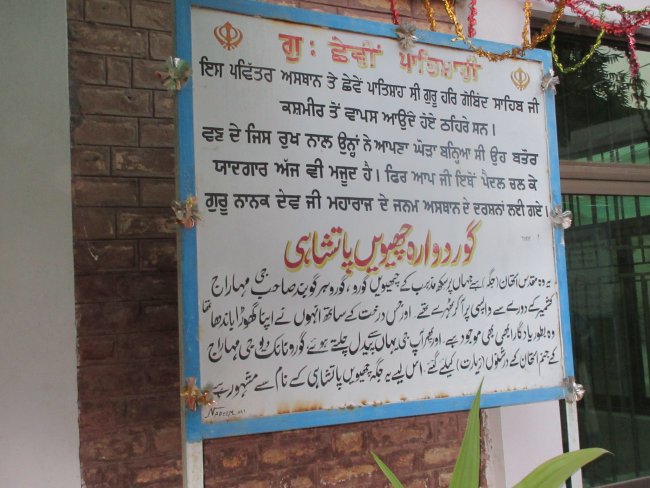 ਗੁ: ਛੇਵੀਂ ਪਾਤਿਸ਼ਾਹੀ
ਇਸ ਪਵਿੱਤਰ ਅਸਥਾਨ ਤੇ ਛੇਵੇਂ ਪਾਤਿਸ਼ਾਹ ਸ੍ਰੀ ਗੁਰੂ ਹਰਿ ਗੋਬਿੰਦ ਸਾਹਿਬ ਜੀ
ਕਸ਼ਮੀਰ ਤੋਂ ਵਾਪਸ ਆਉਂਦੇ ਹੋਏ ਠਹਿਰੇ ਸਨ।
ਵਣ ਦੇ ਜਿਸ ਰੁਖ ਨਾਲ ਉਨ੍ਹਾਂ ਨੇ ਆਪਣਾ ਘੋੜਾ ਬਨ੍ਹਿਆ ਸੀ ਉਹ ਬਤੌਰ
ਯਾਦਗਾਰ ਅੱਜ ਵੀ ਮਜੂਦ ਹੈ। ਫਿਰ ਆਪ ਜੀ ਇਥੋਂ ਪੈਦਲ ਚਲ ਕੇ
ਗੁਰੂ ਨਾਨਕ ਦੇਵ ਜੀ ਮਹਾਰਾਜ ਦੇ ਜਨਮ ਅਸਥਾਨ ਦੇ ਦਰਸ਼ਨਾਂ ਲਈ ਗਏ।
گوردوارہ چھیویں پاتشاہی
یہ وہ مقدس استھان (جگہ) ہے جہاں پر سکھ مذہب کے چھیویں گورو، گورو ہر گوبند صاحب جی مہاراج
کشمیر کے دورے سے واپسی پر آ کر ٹھہرے تھے اور جس درخت کے ساتھ انہوں نے اپنا گھوڑا باندھا تھا
وہ بطور یادگار ابھی بھی موجود ہے، اور پھر آپ جی یہاں سے پیدل چلتے ہوئے گورو نانک دیو جی مہاراج
کے جنم استھان کے درشنوں (زیارت) کیلئے گئے، اس لیے یہ جگہ چھیویں پاتشاہی کے نام سے مشہور ہے
NADEEM